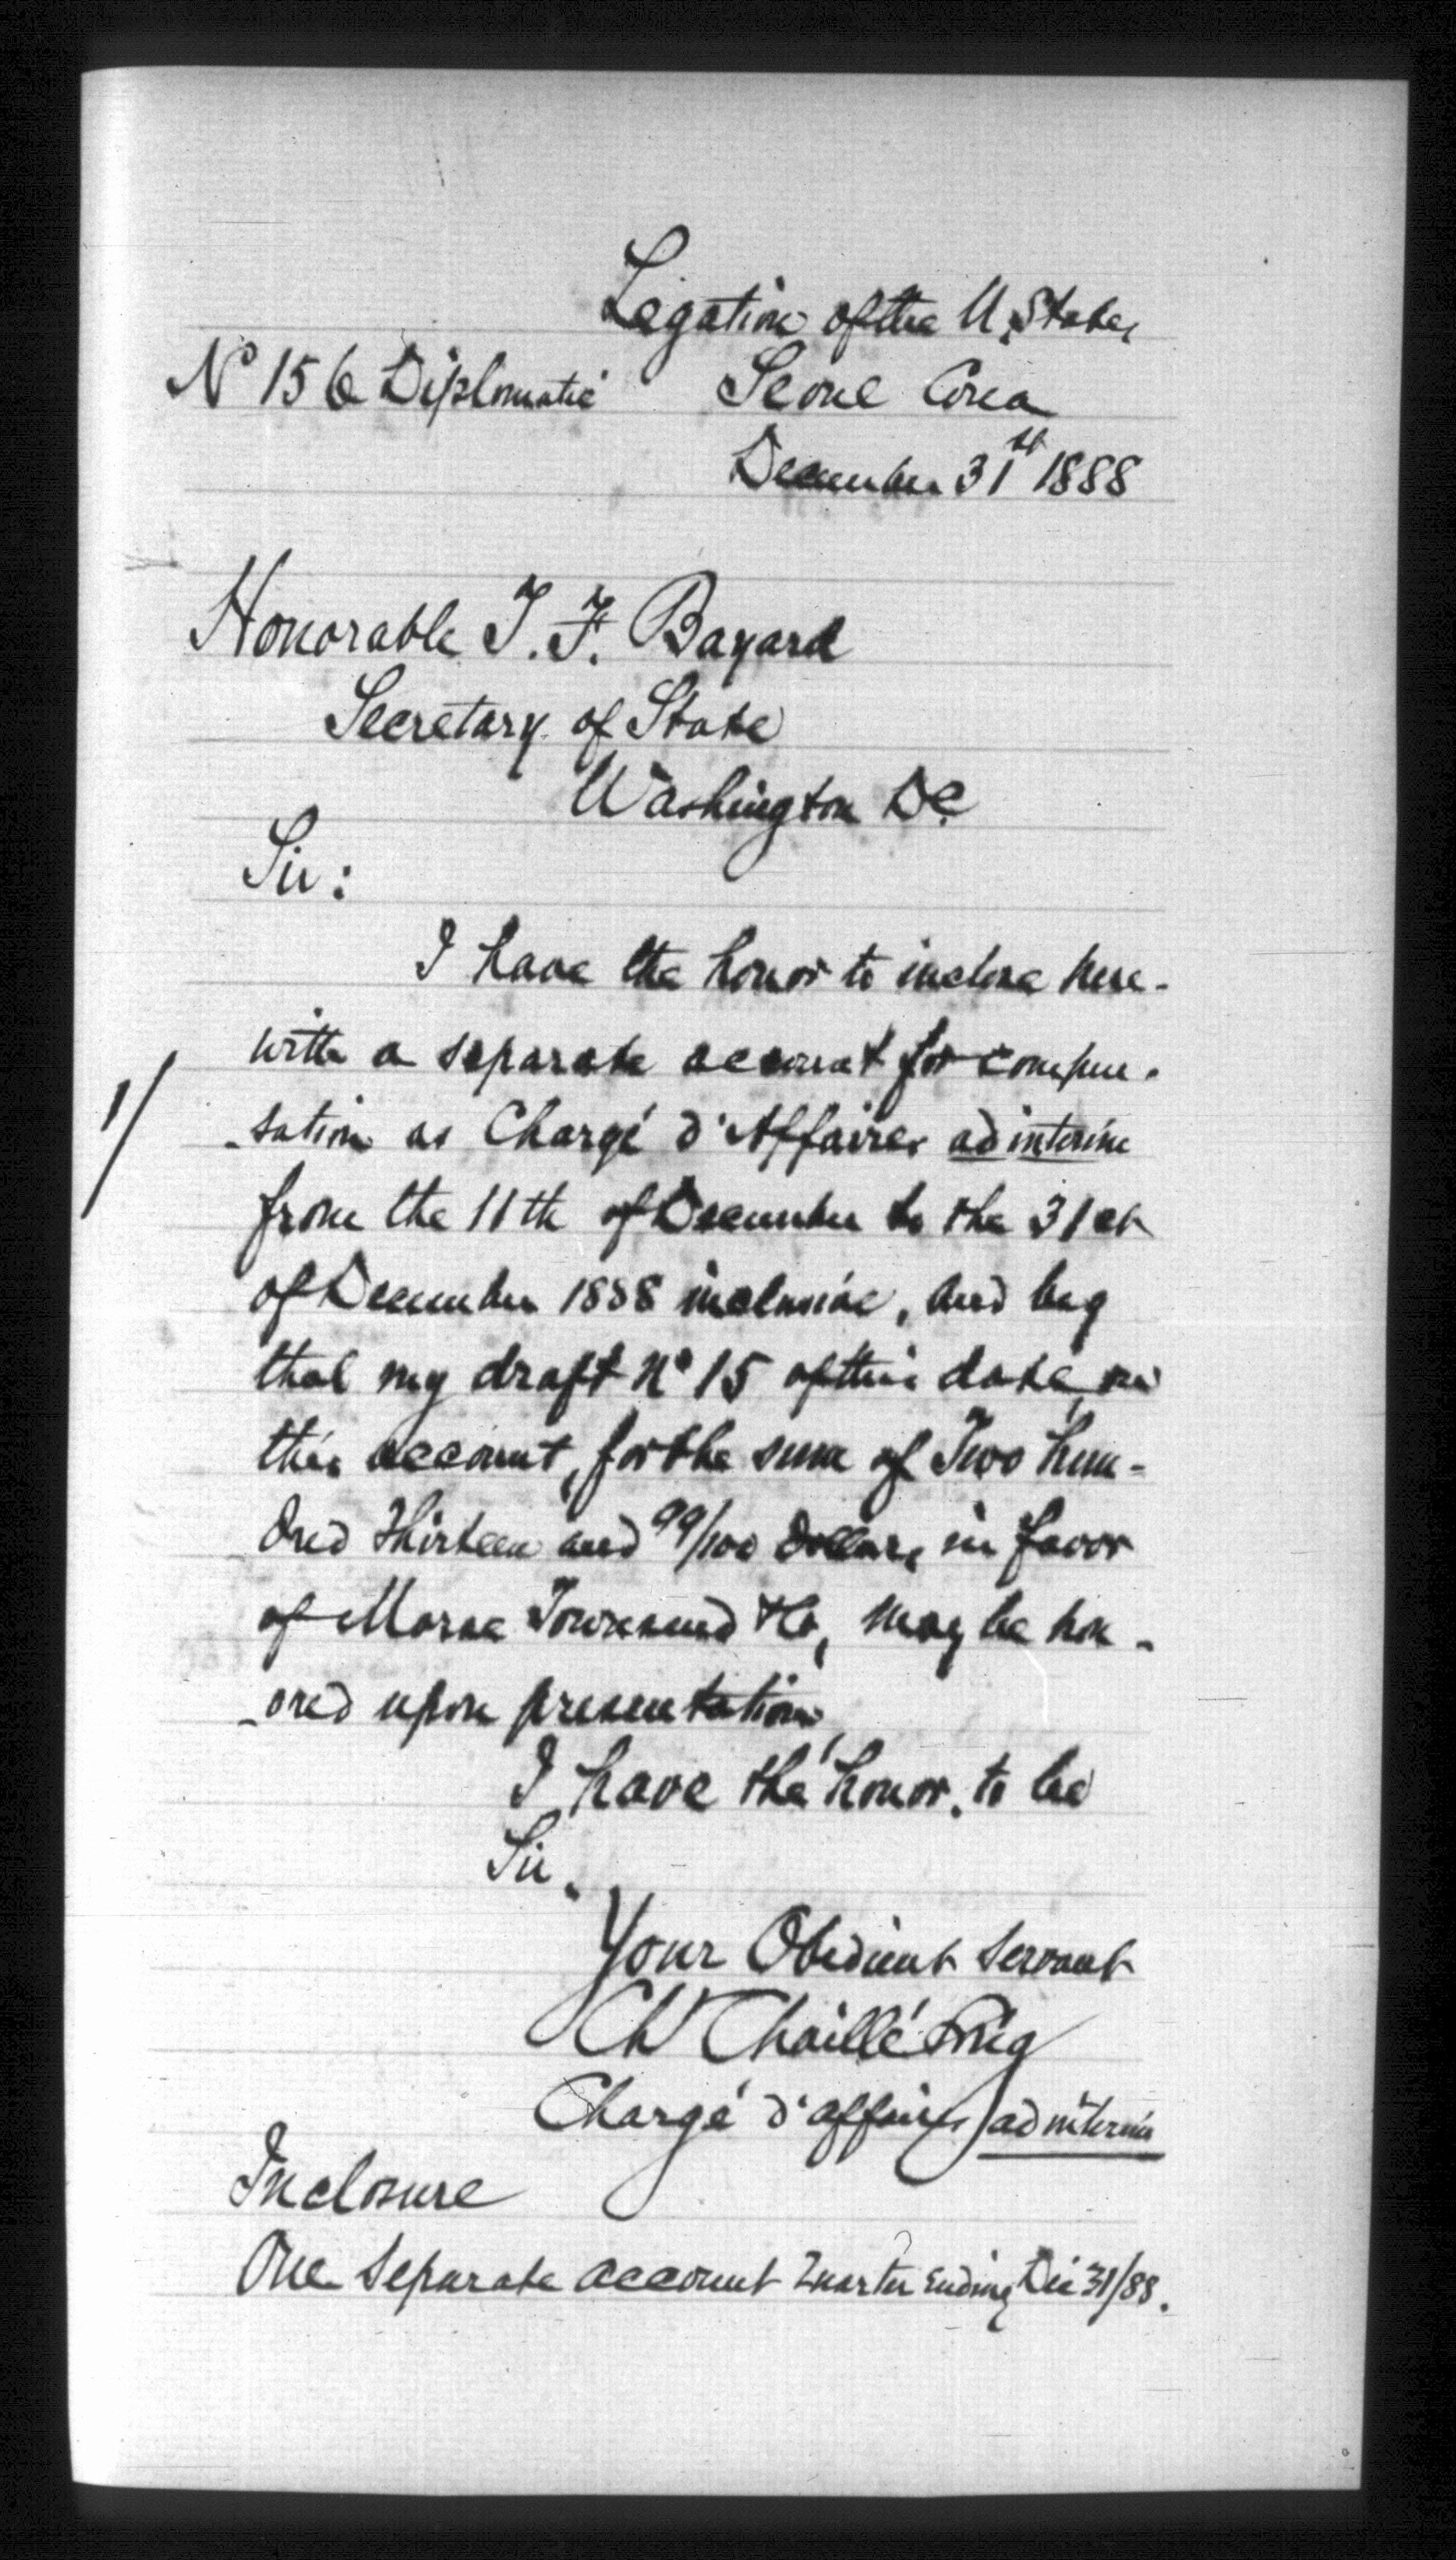 Legation of the U. States
Nº 156 Diplomatic Seoul Corea
December 31st 1888
Honorable T. F. Bayard
Secretary of State
Washington DC
Sir:
I have the honor to inclose here-
with a separate account for compen-
1/
-sation as Chargé d'Affaires ad interim
from the 11th of December to the 31st
of December 1888 inclusive, and beg
that my draft Nº 15 of this date, on
this account, for the sum of Two hun-
dred Thirteen and 99/100 Dollars, in favor
of Morse Townsend & Co, may be hon-
-ored upon presentation,
I have the honor, to be
Sir.
Your Obedient Servant
Ch Chaillé Long
Chargé d'affaires ad interim
Inclosure
One Separate account Quarter Ending Dec 31/88.